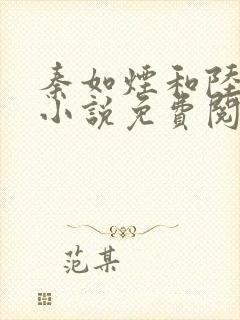 秦如煙和陸
小說免費閱
范某